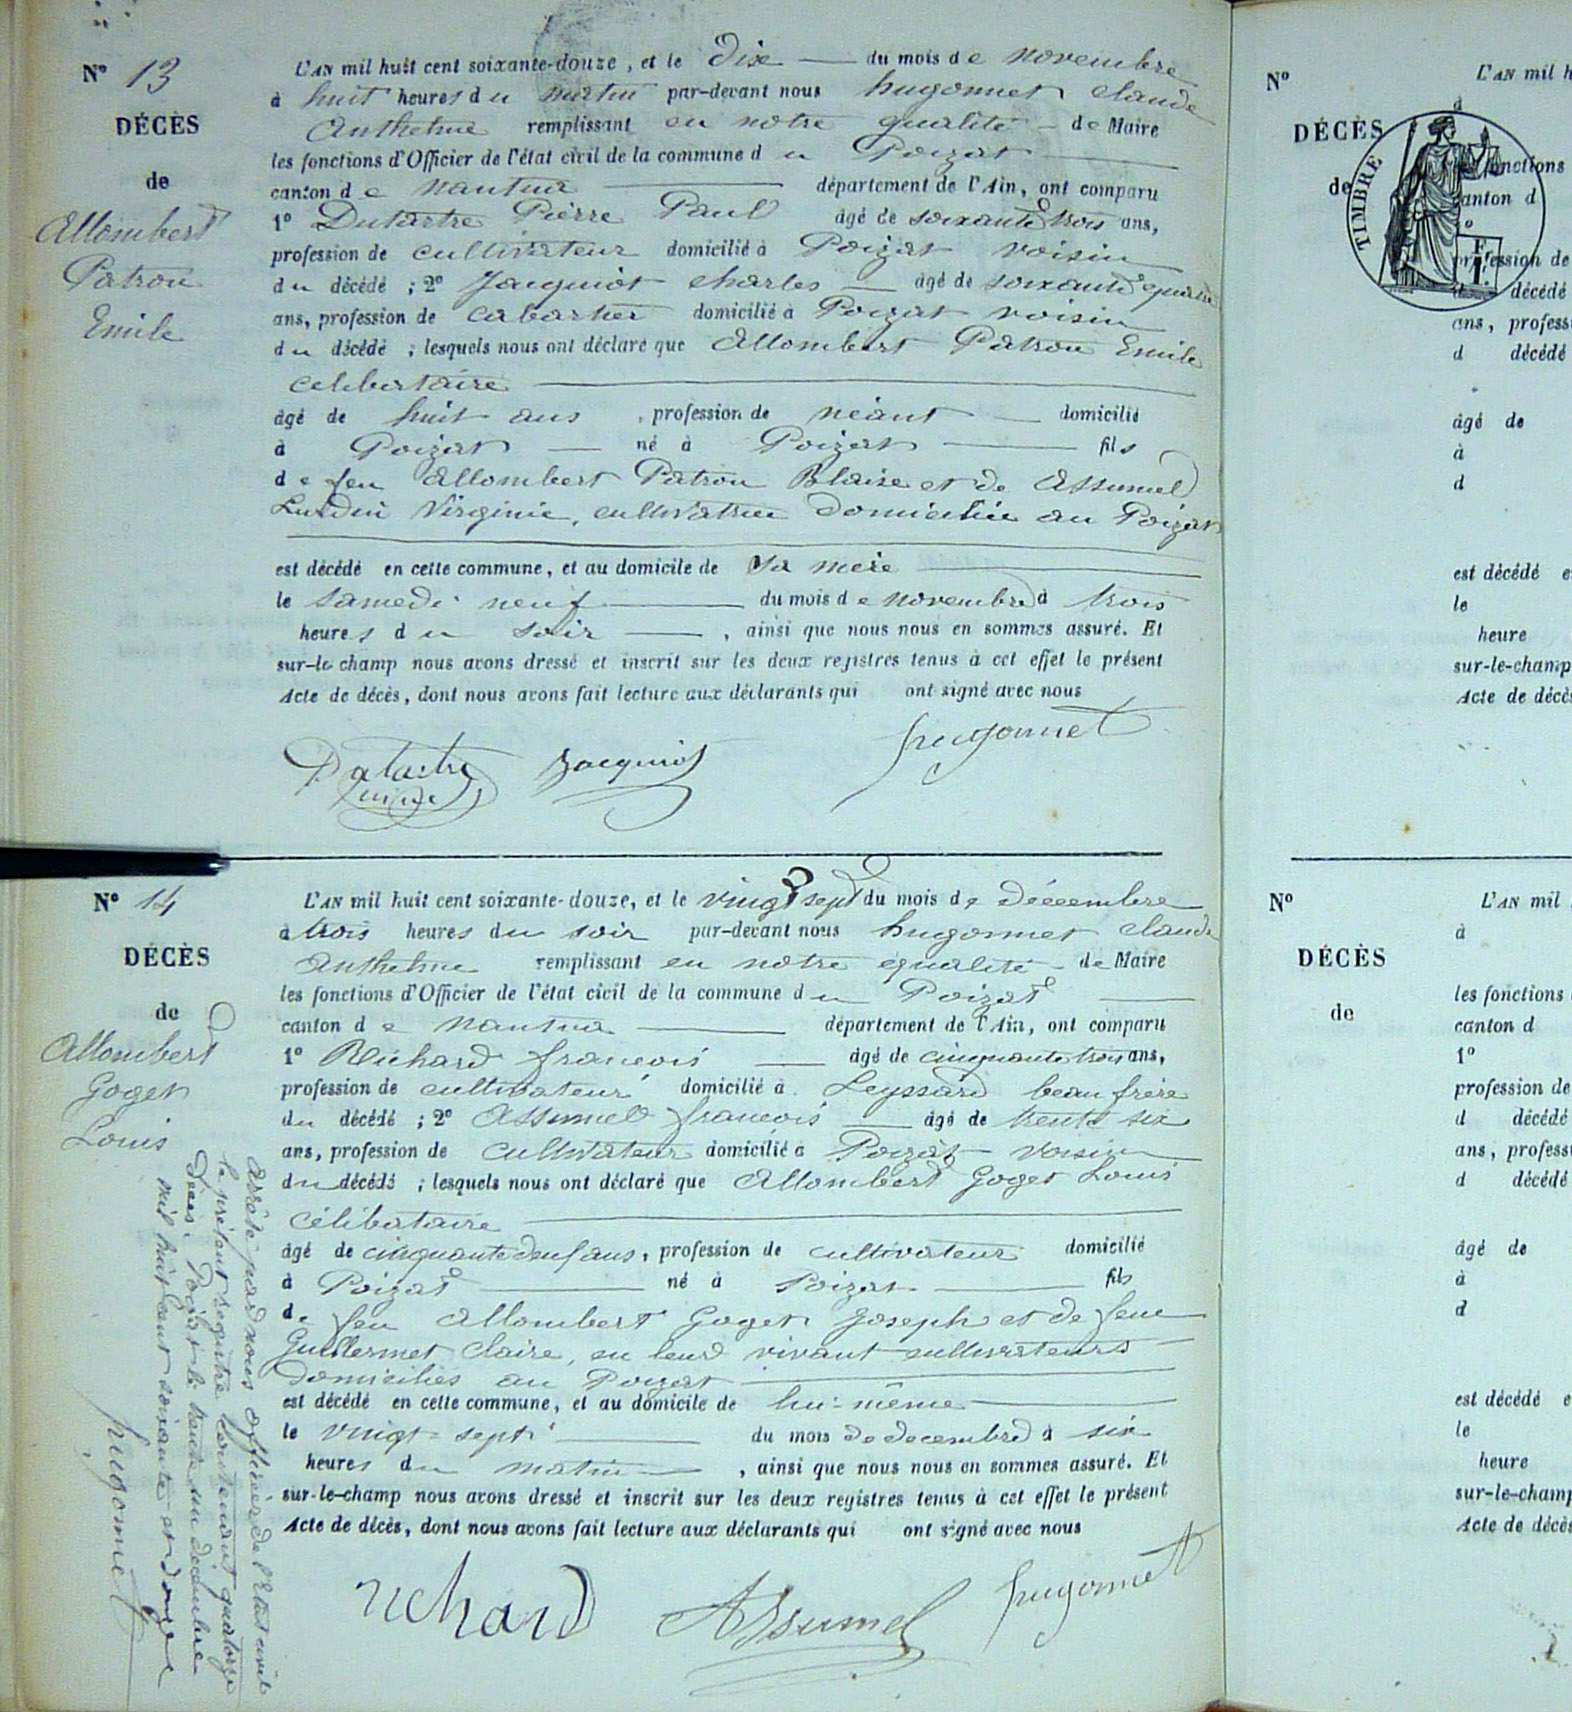 N° 13
DÉCÈS
de
Allombert
Patron
Emile
L'AN mil huit cent soixante-douze, et le dix du mois de novembre
à huit heures du matin par-devant nous hugonnet claude
Anthelme remplissant en notre qualité de Maire
les fonctions d'Officier de l'état civil de la commune du Poizat
canton de nantua département de l'Ain, ont comparu
1° Dutartre Pierre Paul âgé de soixante trois ans,
profession de cultivateur domicilié à Poizat voisin
du décédé ; 2° Jacquiot charles âgé de soixante quatre
ans, profession de cabartier domicilié à Poizat voisin
du décédé ; lesquels nous ont déclaré que Allombert Patron Emile
celibertaire
âgé de huit ans, profession de néant domicilié
à Poizat né à Poizat fils
de feu Allombert Patron Blaise et de Assumel
Lurdin Virginie, cultivatrice domiciliée au Poizat
est décédé en cette commune, et au domicile de sa mère
le samedi neuf du mois de novembre à trois
heures du soir, ainsi que nous nous en sommes assuré. Et
sur-le-champ nous avons dressé et inscrit sur les deux registres tenus à cet effet le présent
Acte de décès, dont nous avons fait lecture aux déclarants qui ont signé avec nous
Dutartre Jacquiot hugonnet
N° 14
DÉCÈS
de
Allombert
Goget
Louis
L'AN mil huit cent soixante-douze, et le vingt sept du mois de décembre
à trois heures du soir par-devant nous hugonnet claude
Anthelme remplissant en notre qualité de Maire
les fonctions d'Officier de l'état civil de la commune du Poizat
canton de nantua département de l'Ain, ont comparu
1° Richard francois âgé de cinquante trois ans,
profession de cultivateur domicilié à Leyssard beau frère
du décédé ; 2° Assumel francois âgé de trente six
ans, profession de cultivateur domicilié à Poizat voisin
du décédé ; lesquels nous ont déclaré que Allombert Goget Louis
célibataire
âgé de cinquante deux ans, profession de cultivateur domicilié
à Poizat né à Poizat fils
de feu Allombert Goget Joseph et de feue
Guillermet Claire, en leur vivant cultivateurs
domiciliés au Poizat
est décédé en cette commune, et au domicile de lui-même
le vingt-sept du mois de decembre à six
heures du matin, ainsi que nous nous en sommes assuré. Et
sur-le-champ nous avons dressé et inscrit sur les deux registres tenus à cet effet le présent
Acte de décès, dont nous avons fait lecture aux déclarants qui ont signé avec nous
richard Assumel hugonnet
Arrêté par nous officier de l'Etat civil
le présent registre contenant quatorze
décès. Poizat le trente un décembre
mil huit cent soixante et douze
hugonnet
N° L'AN mil h
DÉCÈS
de
TIMBRE
fonctions
canton d
1°
profession de
d décédé
ans, profess
d décédé
âgé de
à
d
est décédé e
le
heure
sur-le-champ
Acte de décès
N° L'AN mil
à
DÉCÈS
de
les fonctions
canton d
1°
profession de
d décédé
ans, profess
d décédé
âgé de
à
d
est décédé e
le
heure
sur-le-champ
Acte de décès